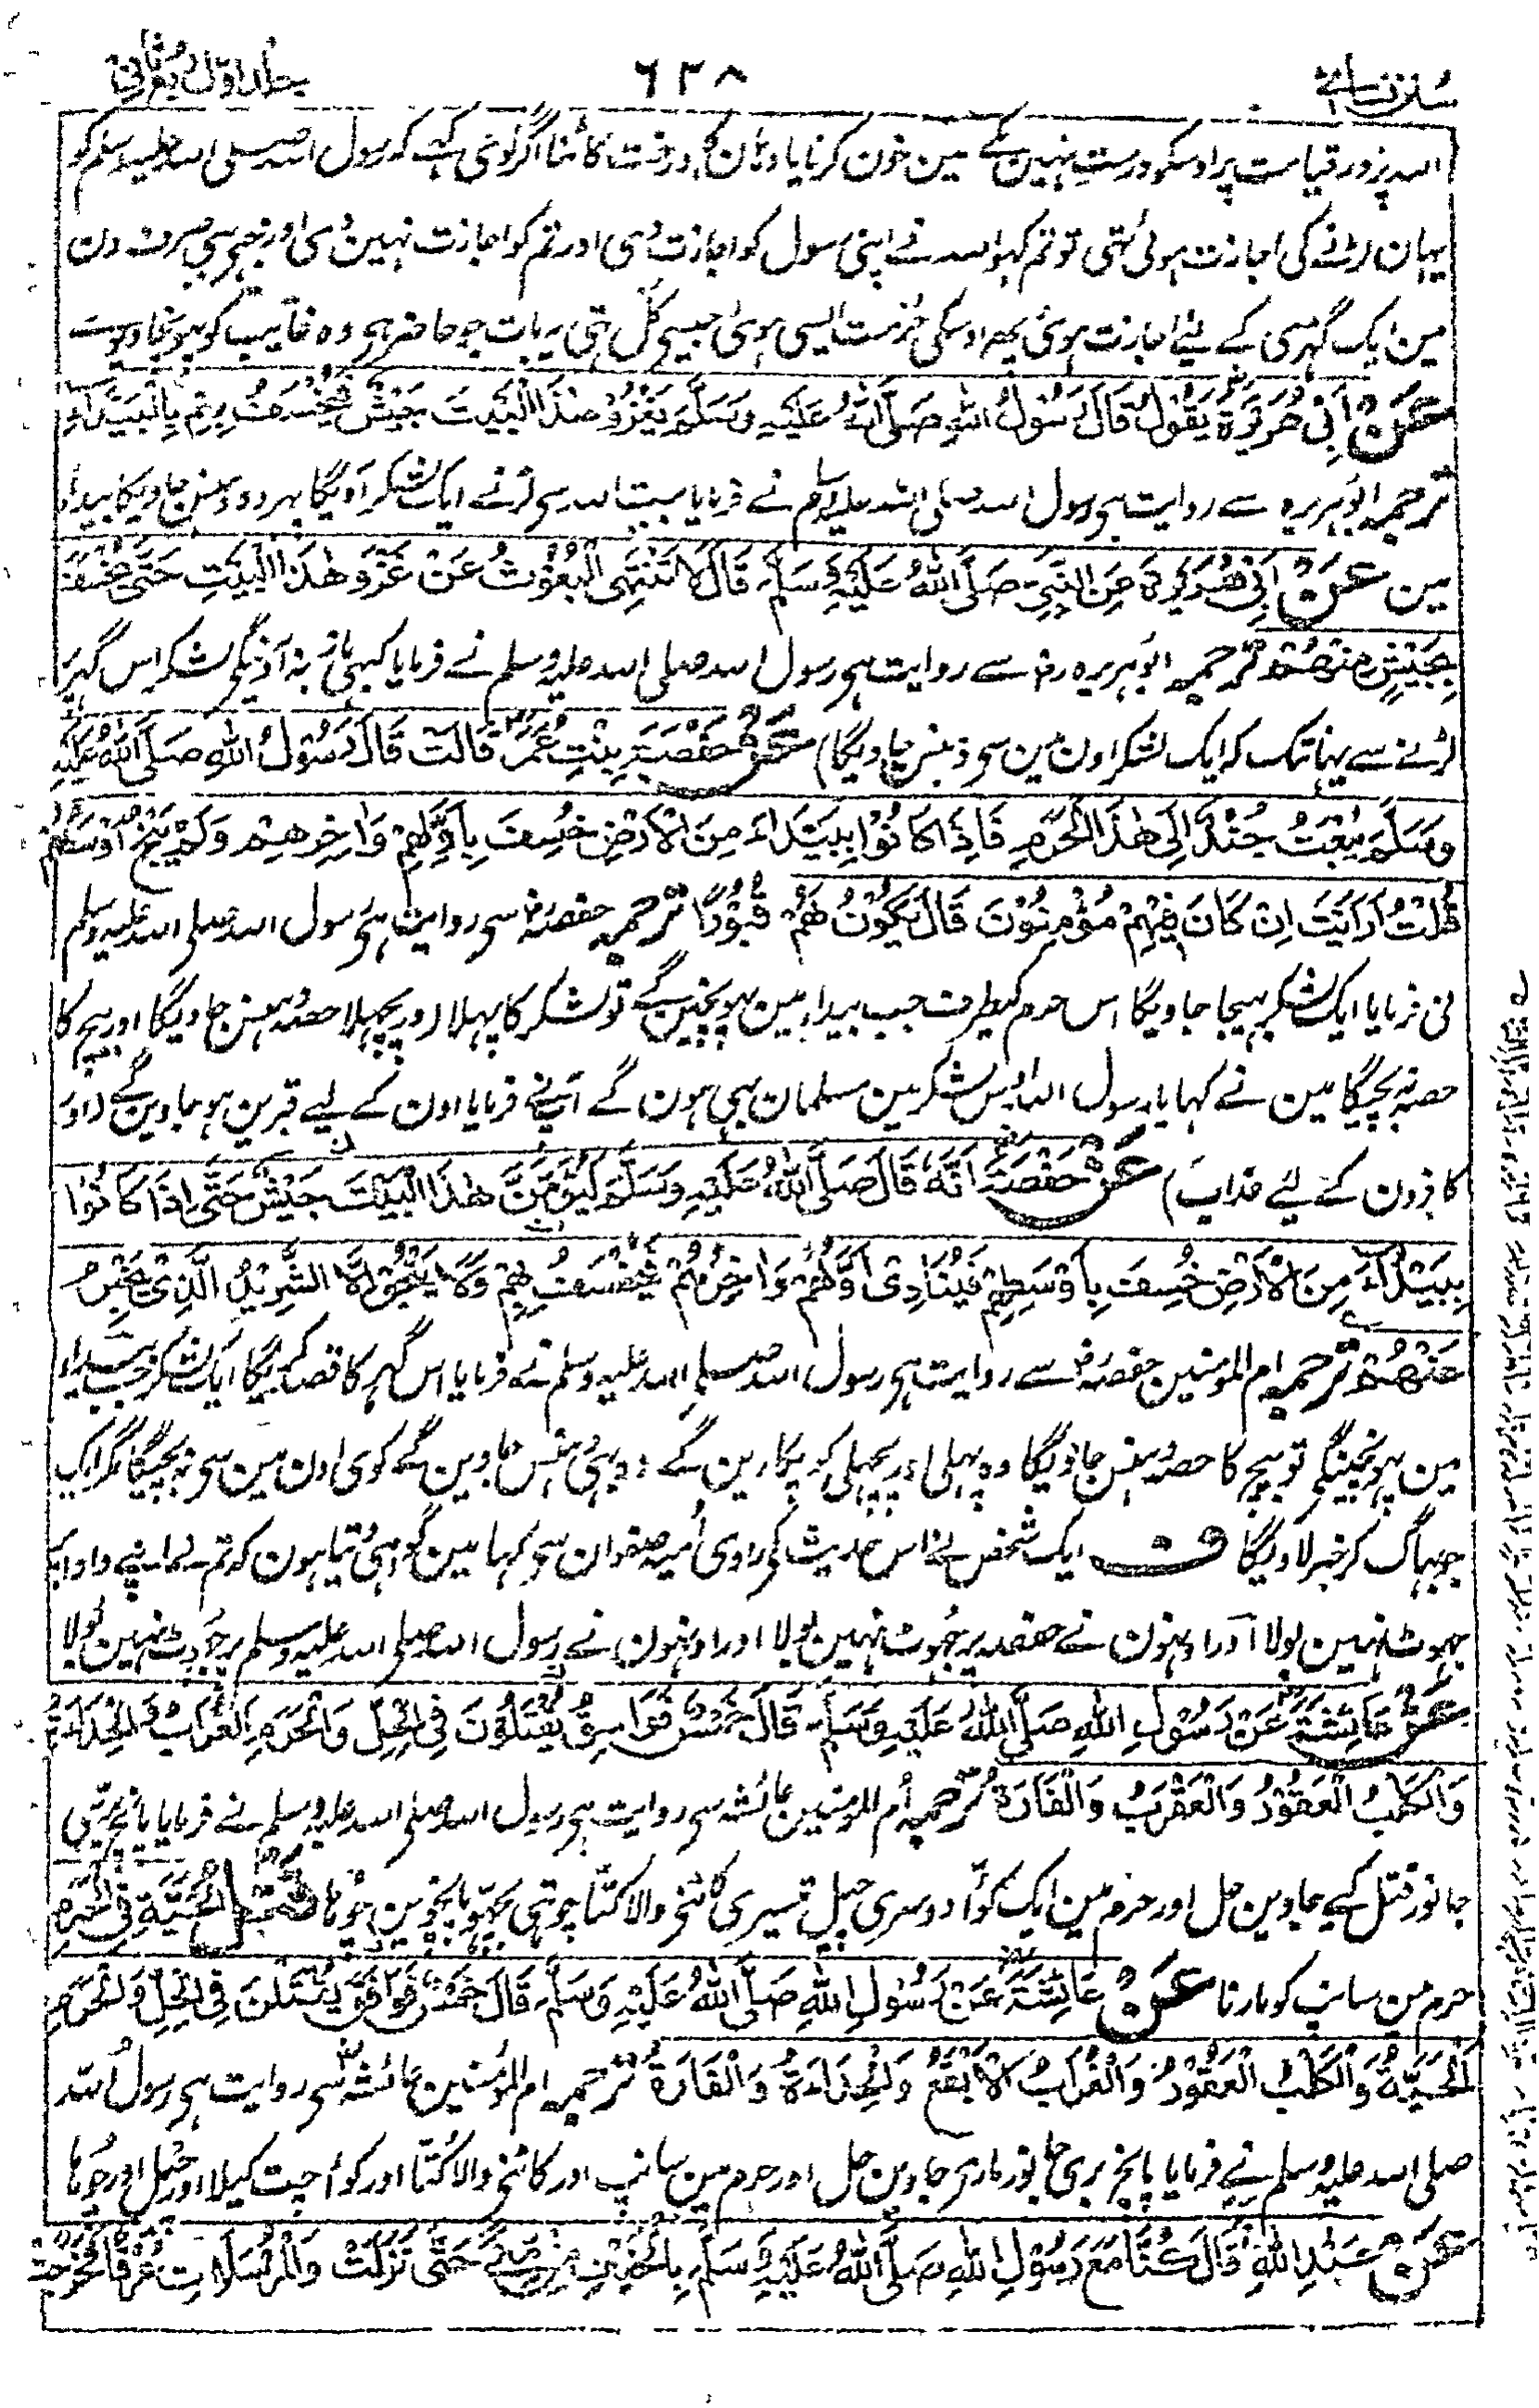 سنن نسائی
۶۳۸
جلد اول و ثانی
اللہ پر اور قیامت پر اوسکو درست نہین مکے مین خون کرنا یا وہان کا درخت کاٹنا اگر کوئی کہے کہ رسول اللہ صلی اللہ علیہ وسلم کو
یہان لڑنے کی اجازت ہوئی تھی تو تم کہو اللہ نے اپنی رسول کو اجازت دی اور تم کو اجازت نہین دی اور مجہی بہی صرف دن
مین ایک گہڑی کے لئے اجازت ہوئی پہر اوسکی حرمت ایسی ہوئی جیسی کل تہی یہ بات جو حاضر ہی وہ غائب کو پہونچا دیوے
عَنْ اَبِی هُرَيْرَةَ يَقُوْلُ قَالَ رَسُوْلُ اللهِ صَلَّى اللهُ عَلَيْهِ وَسَلَّمَ يَغْزُوْ هٰذَا الْبَيْتَ جَيْشٌ فَيُخْسَفُ بِهِمْ بِالْبَيْدَاءِ
ترجمہ ابوہریرہ سے روایت ہی رسول اللہ صلی اللہ علیہ وسلم نے فرمایا بیت اللہ سی لڑنے ایک لشکر آویگا پہر وہ دہنس جاویگا بیداء
مین عَنْ اَبِیْ هُرَيْرَةَ عَنِ النَّبِیِّ صَلَّى اللهُ عَلَيْهِ وَسَلَّمَ قَالَ لَا تَنْتَهِی الْبُعُوْثُ عَنْ غَزْوِ هٰذَا الْبَيْتِ حَتّٰى يُخْسَفَ
بِجَيْشٍ مِنْهُمْ ترجمہ ابوہریرہ رض سے روایت ہی رسول اللہ صلی اللہ علیہ وسلم نے فرمایا کبہی باز نہ آوینگے لشکر اس گہر پر
لڑنے سے یہانتک کہ ایک لشکر اون مین سی دہنس جاویگا) عَنْ حَفْصَةَ بِنْتِ عُمَرَ قَالَتْ قَالَ رَسُوْلُ اللهِ صَلَّى اللهُ عَلَيْهِ
وَسَلَّمَ يُبْعَثُ جُنْدٌ اِلٰى هٰذَا الْحَرَمِ فَاِذَا كَانُوْا بِبَيْدَاءَ مِنَ الْاَرْضِ خُسِفَ بِاَوَّلِهِمْ وَاٰخِرِهِمْ وَلَمْ يَنْجُ اَوْسَطُهُمْ
قُلْتُ اَرَاَيْتَ اِنْ كَانَ فِيْهِمْ مُؤْمِنُوْنَ قَالَ يَكُوْنُ لَهُمْ قُبُوْرًا ترجمہ حفصہ رض سی روایت ہی رسول اللہ صلی اللہ علیہ وسلم
نی فرمایا ایک لشکر بہیجا جاویگا اس حرم کیطرف جب بیداء مین پہونچین گے تو لشکر کا پہلا اور پچھلا حصہ دہنس جاویگا اور بیچ کا
حصہ نہ بچیگا مین نے کہا یا رسول اللہ اوس لشکر مین مسلمان بہی ہون گے آپنے فرمایا اون کے لیے قبرین ہو جاوین گے (اور
کافرون کے لیے عذاب) عَنْ حَفْصَةَ اَنَّهٗ قَالَ صَلَّى اللهُ عَلَيْهِ وَسَلَّمَ لَيَؤُمَّنَّ هٰذَا الْبَيْتَ جَيْشٌ حَتّٰى اِذَا كَانُوْا
بِبَيْدَاءَ مِنَ الْاَرْضِ خُسِفَ بِاَوْسَطِهِمْ فَيُنَادِیْ اَوَّلُهُمْ وَاٰخِرُهُمْ فَيُخْسَفُ بِهِمْ وَلَا يَنْجُوْ اِلَّا الشَّرِيْدُ الَّذِیْ يُخْبِرُ
عَنْهُمْ ترجمہ ام المومنین حفصہ رض سے روایت ہی رسول اللہ صلی اللہ علیہ وسلم نے فرمایا اس گہر کا قصد کریگا ایک لشکر جب بیداء
مین پہونچینگے تو بیچ کا حصہ دہنس جاویگا وہ پہلی اور پچھلی کو پکارین گے وہ بہی دہنس جاوین گے کوی اون مین سی نہ بچیگا مگر ایک
جو بہاگ کر خبر لاویگا ف ایک شخص نے اس حدیث کی راوی امیہ بن صفوان سی کہا مین گواہی دیتا ہون کہ تم نے اپنے دادا پر
جہوٹ نہین بولا اور اونہون نے حفصہ پر جہوٹ نہین بولا اور اونہون نے رسول اللہ صلی اللہ علیہ وسلم پر جہوٹ نہین بولا
عَنْ عَائِشَةَ عَنْ رَسُوْلِ اللهِ صَلَّى اللهُ عَلَيْهِ وَسَلَّمَ قَالَ خَمْسٌ فَوَاسِقُ يُقْتَلْنَ فِی الْحِلِّ وَالْحَرَمِ الْغُرَابُ وَالْحِدَاَةُ
وَالْكَلْبُ الْعَقُوْرُ وَالْعَقْرَبُ وَالْفَاْرَةُ ترجمہ ام المومنین عائشہ سی روایت ہی رسول اللہ صلی اللہ علیہ وسلم نے فرمایا پانچ بری
جانور قتل کیے جاوین حل اور حرم مین ایک کوّا دوسری چیل تیسری کاٹنی والا کتّا چوتہی بچہو پانچوین چوہا قَتْلُ الْحَيَّةِ فِی الْحَرَمِ
حرم مین سانپ کو مارنا عَنْ عَائِشَةَ عَنْ رَسُوْلِ اللهِ صَلَّى اللهُ عَلَيْهِ وَسَلَّمَ قَالَ خَمْسٌ فَوَاسِقُ يُقْتَلْنَ فِی الْحِلِّ وَالْحَرَمِ
اَلْحَيَّةُ وَالْكَلْبُ الْعَقُوْرُ وَالْغُرَابُ الْاَبْقَعُ وَالْحِدَاَةُ وَالْفَارَةُ ترجمہ ام المؤمنین عائشہ سی روایت ہی رسول اللہ
صلی اللہ علیہ وسلم نے فرمایا پانچ بری جانور ماری جاوین حل اور حرم مین سانپ اور کاٹنی والا کتّا اور کوا چت کبلا اور چیل اور چوہا
عَنْ عَبْدِ اللهِ قَالَ كُنَّا مَعَ رَسُوْلِ اللهِ صَلَّى اللهُ عَلَيْهِ وَسَلَّمَ بِالْخَيْفِ مِنْ مِنًى حَتّٰى نَزَلَتْ وَالْمُرْسَلَاتِ عُرْفًا فَخَرَجَتْ